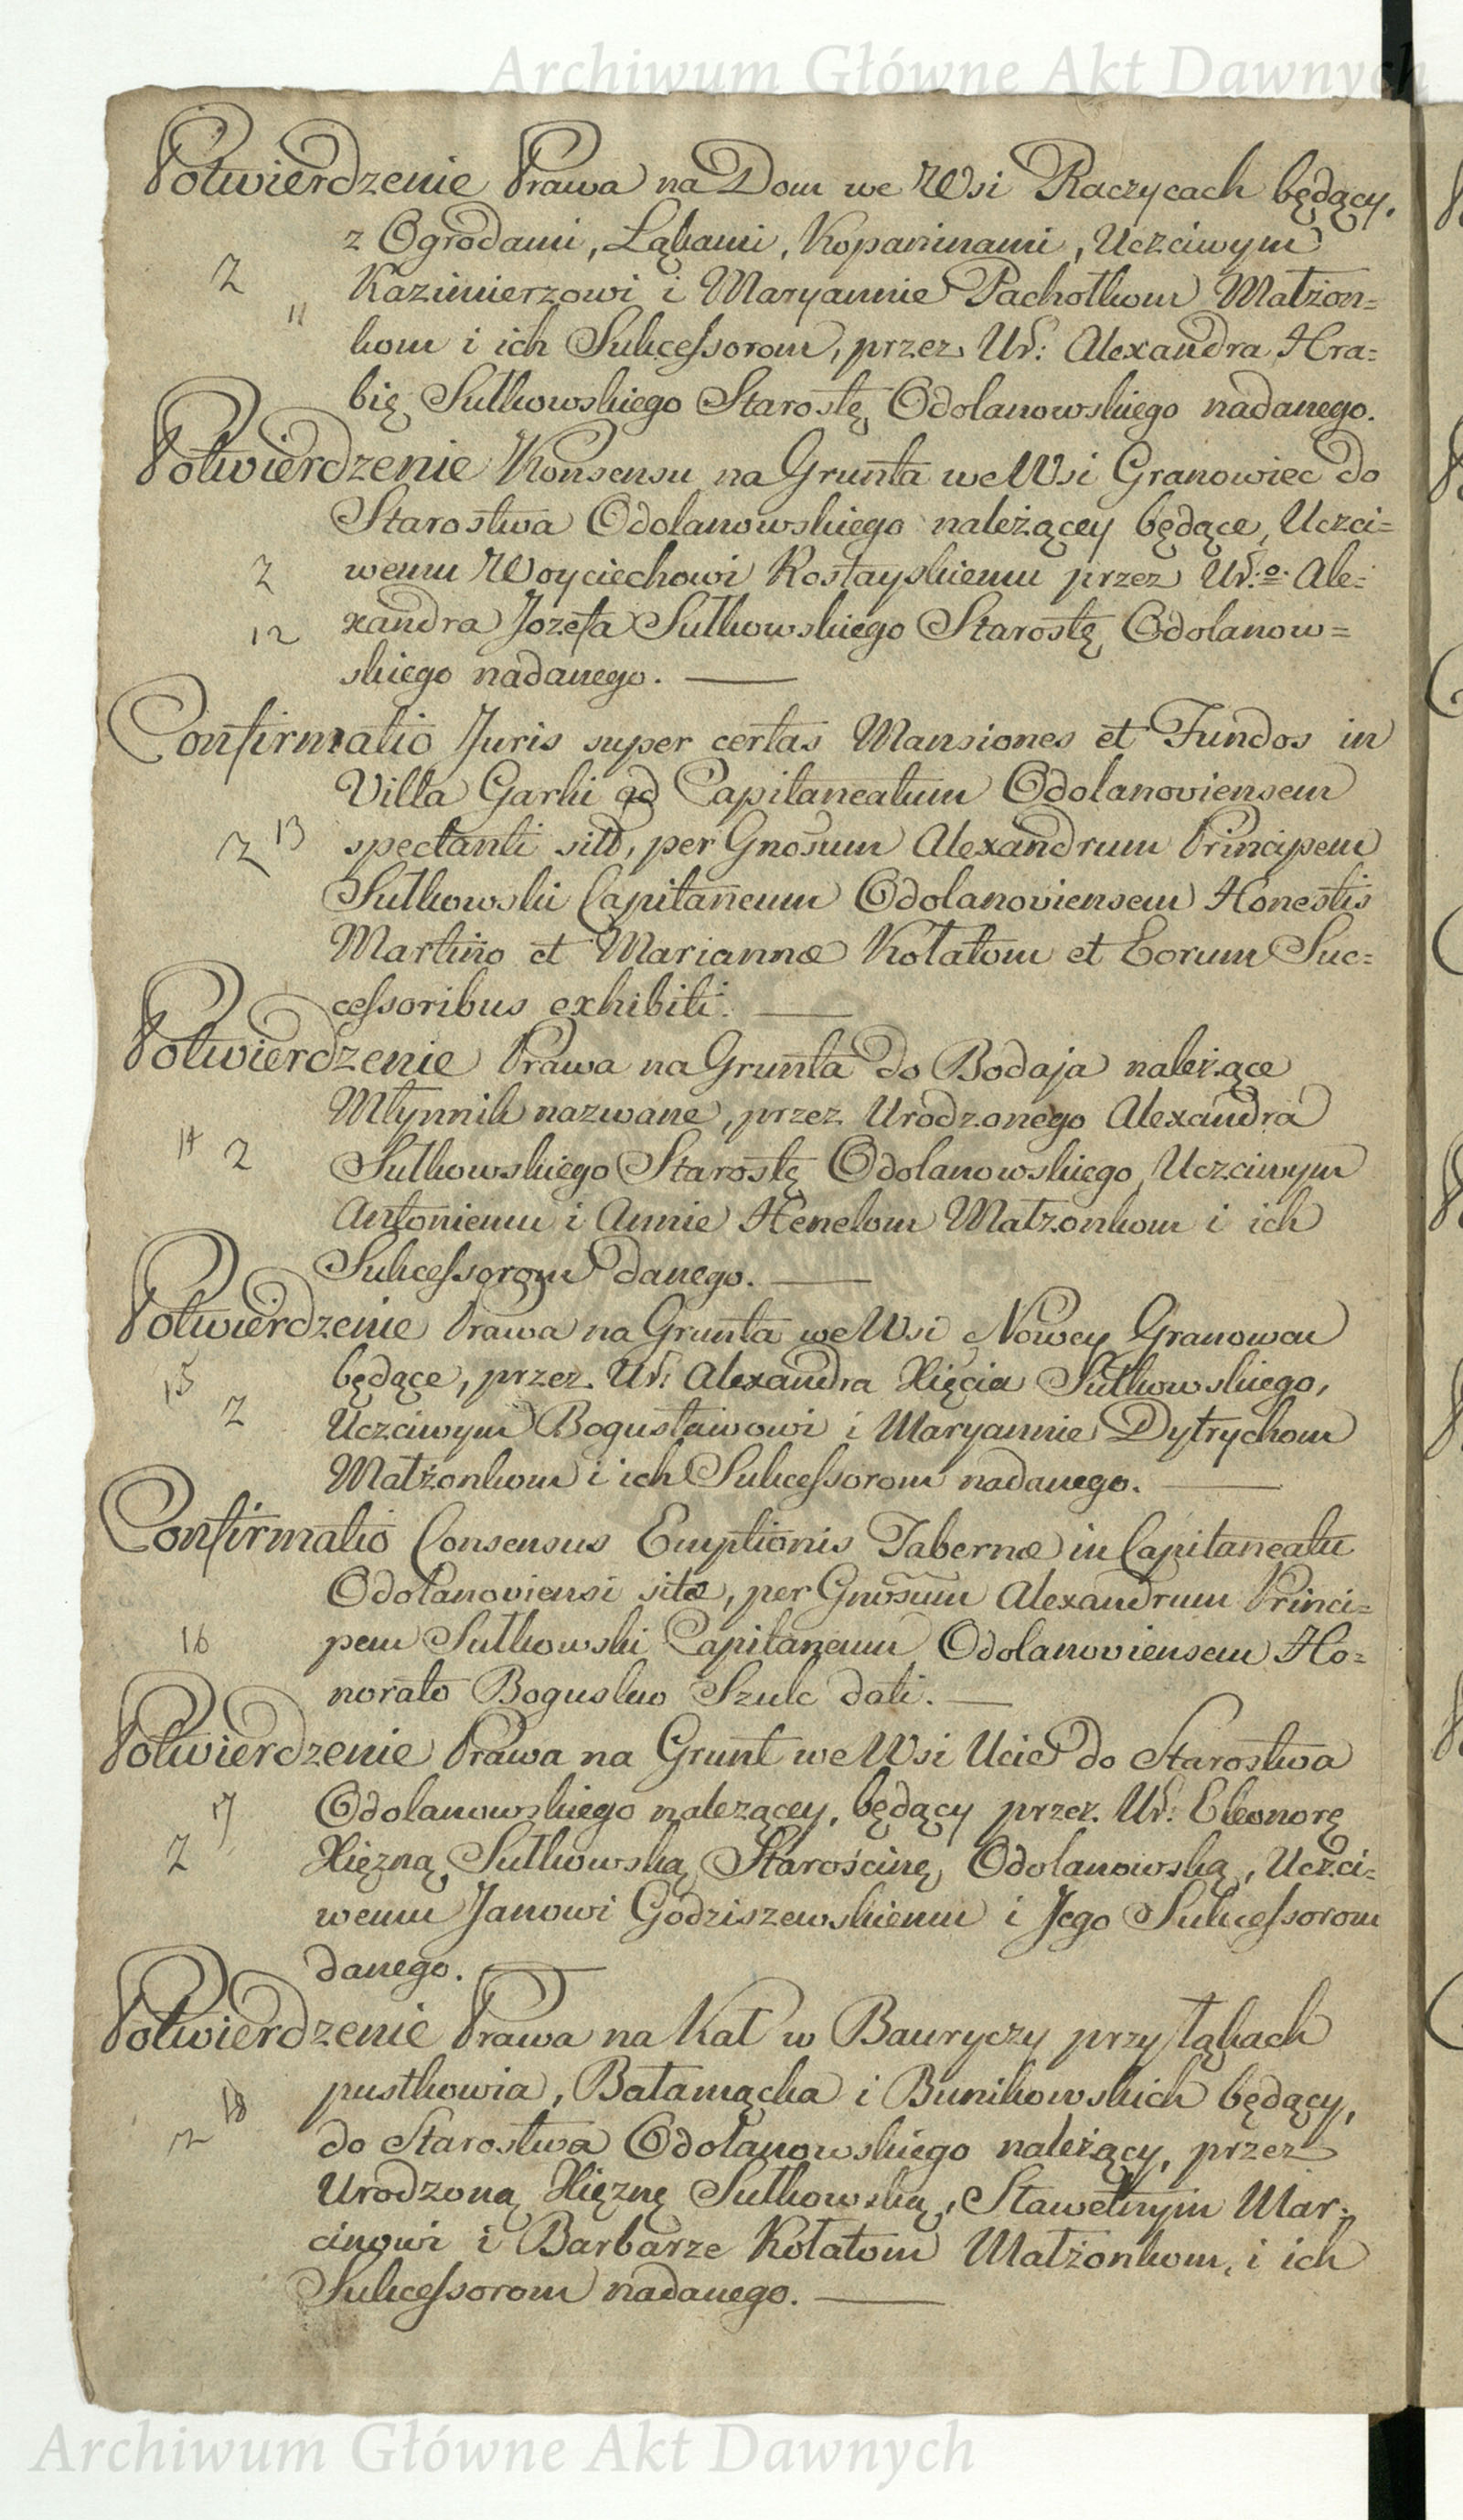 Archiwum Główne Akt Dawnych
Potwierdzenie Prawa na Dom we Wsi Raczycach będący,
z Ogrodami, Łąkami, Kopaninami, Uczciwym
2
Kazimierzowi i Maryannie Pachołkom Małżon=
11
kom i ich Sukcessorom, przez Ur: Alexandra Hra=
bię Sułkowskiego Starostę Odolanowskiego nadanego.
Potwierdzenie Konsensu na Grunta we Wsi Granowiec do
Starostwa Odolanowskiego należącey będące, Uczci=
2
wemu Woyciechowi Rostayskiemu przez Ur:o Ale=
12
xandra Jozefa Sułkowskiego Starostę Odolanow=
skiego nadanego.
Confirmatio Juris super certas Mansiones et Fundos in
Villa Garki ad Capitaneatum Odolanoviensem
2 13
spectanti sitō, per Gnosum Alexandrum Principem
Sułkowski Capitaneum Odolanoviensem Honestis
Martino et Mariannæ Kołatom et Eorum Suc=
cessoribus exhibiti.
Potwierdzenie Prawa na Grunta do Bodaja należące
Młynnik nazwane, przez Urodzonego Alexandra
14 2
Sułkowskiego Starostę Odolanowskiego Uczciwym
Antoniemu i Annie Henelom Małzonkom i ich
Sukcessorom danego.
Potwierdzenie Prawa na Grunta we Wsi Nowey Granowcu
15
będące, przez Ur: Alexandra Xięcia Sułkowskiego,
2
Uczciwym Bogusławowi i Maryannie Dytrychom
Małżonkom i ich Sukcessorom nadanego.
Confirmatio Consensus Emptionis Tabernæ in Capitaneatu
Odolanoviensi sitæ, per Gnosum Alexandrum Princi=
16
pem Sułkowski Capitaneum Odolanoviensem Ho=
norato Boguslao Szulc dati.
Potwierdzenie Prawa na Grunt we Wsi Ucie do Starostwa
17
Odolanowskiego nalezącey, będący przez Ur: Eleonorę
2
Xięzną Sułkowską Starościnę Odolanowską, Uczci=
wemu Janowi Godziszewskiemu i Jego Sukcessorom
danego.
Potwierdzenie Prawa na Kał w Bauryczy przy łąkach
pustkowia, Bałamącka i Bunikowskich będący,
2 18
do Starostwa Odolanowskiego należący, przez
Urodzoną Xięznę Sułkowską, Sławetnym Mar=
cinowi i Barbarze Kołatom Małżonkom, i ich
Sukcessorom nadanego.
Archiwum Główne Akt Dawnych